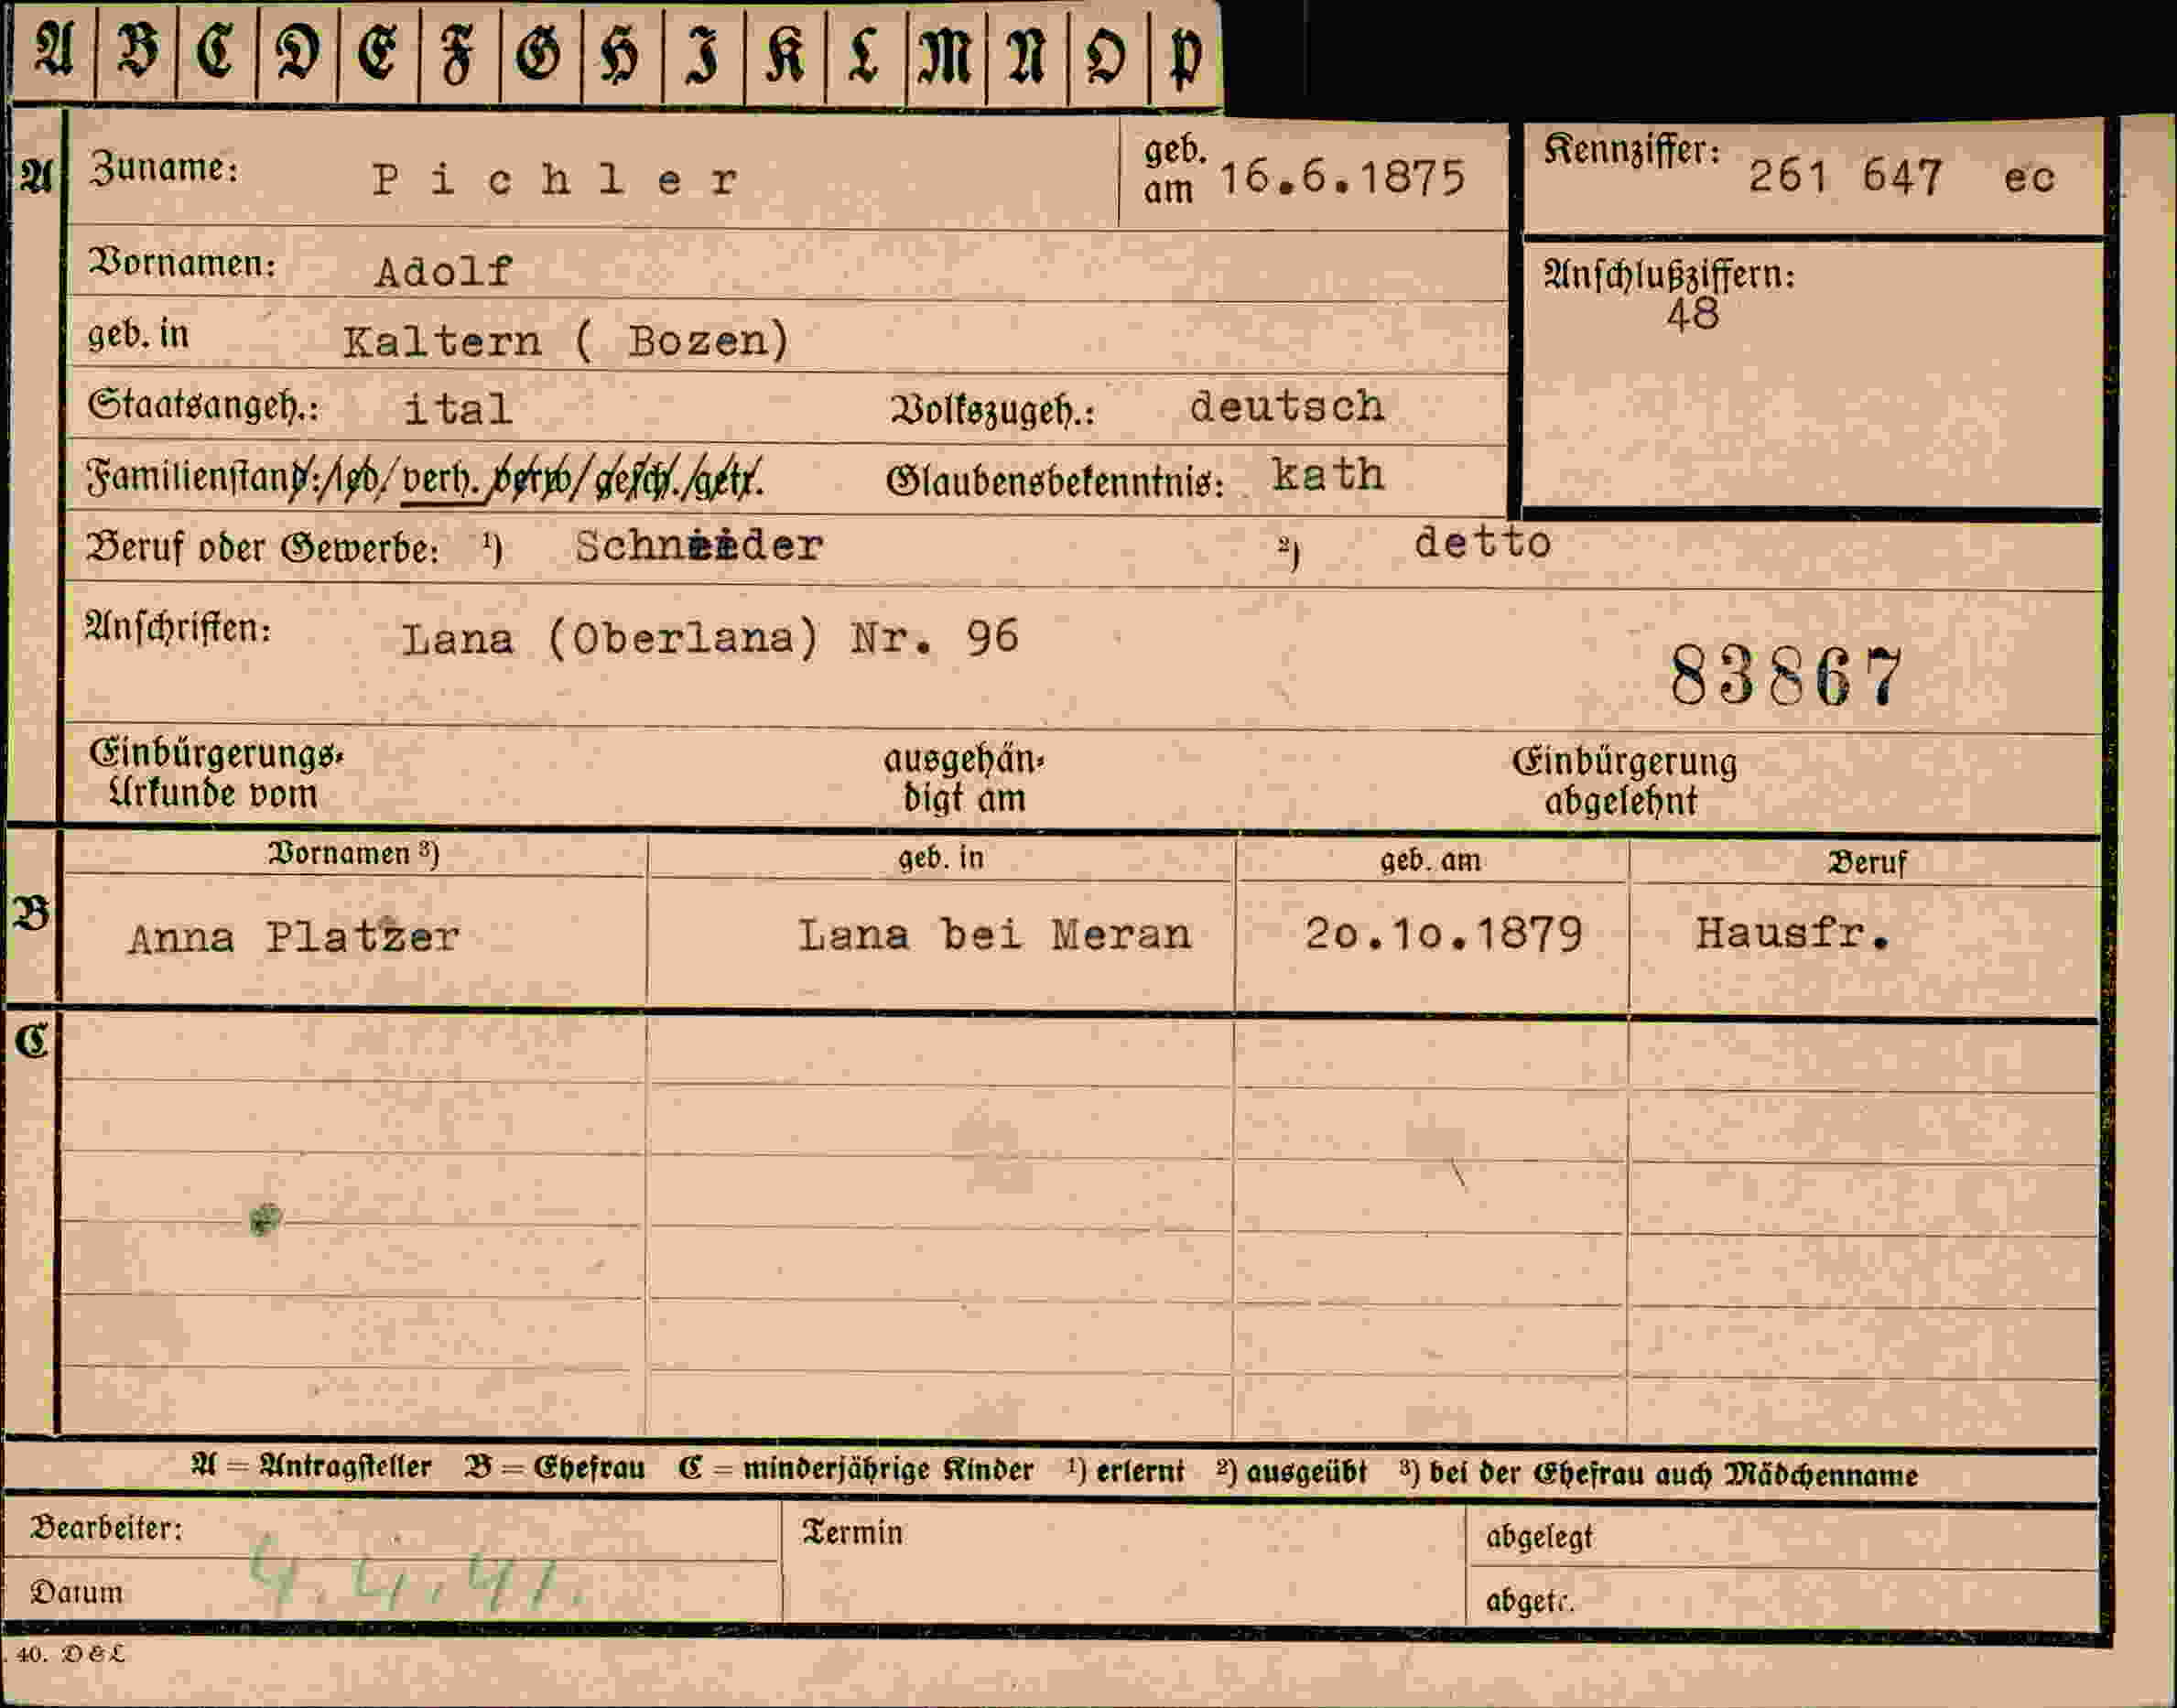 A B C D E F G H I K L M N O P
A Zuname: Pichler geb. am 16.6.1875 Kennziffer: 261 647 ec
Vornamen: Adolf Anschlußziffern:
48
geb. in Kaltern ( Bozen)
Staatsangeh.: ital Volkszugeh.: deutsch
Familienstand:/led/verh. verw/gesch./getr. Glaubensbekenntnis: kath
Beruf oder Gewerbe: ¹) Schneider ²) detto
Anschriften: Lana (Oberlana) Nr. 96
83867
Einbürgerungs-
Urkunde vom
ausgehän-
digt am
Einbürgerung
abgelehnt
Vornamen ³) geb. in geb. am Beruf
B Anna Platzer Lana bei Meran 20.10.1879 Hausfr.
C
A = Antragsteller B = Ehefrau C = minderjährige Kinder ¹) erlernt ²) ausgeübt ³) bei der Ehefrau auch Mädchenname
Bearbeiter: Termin abgelegt
Datum 4.4.41. abgetr.
40. D&L